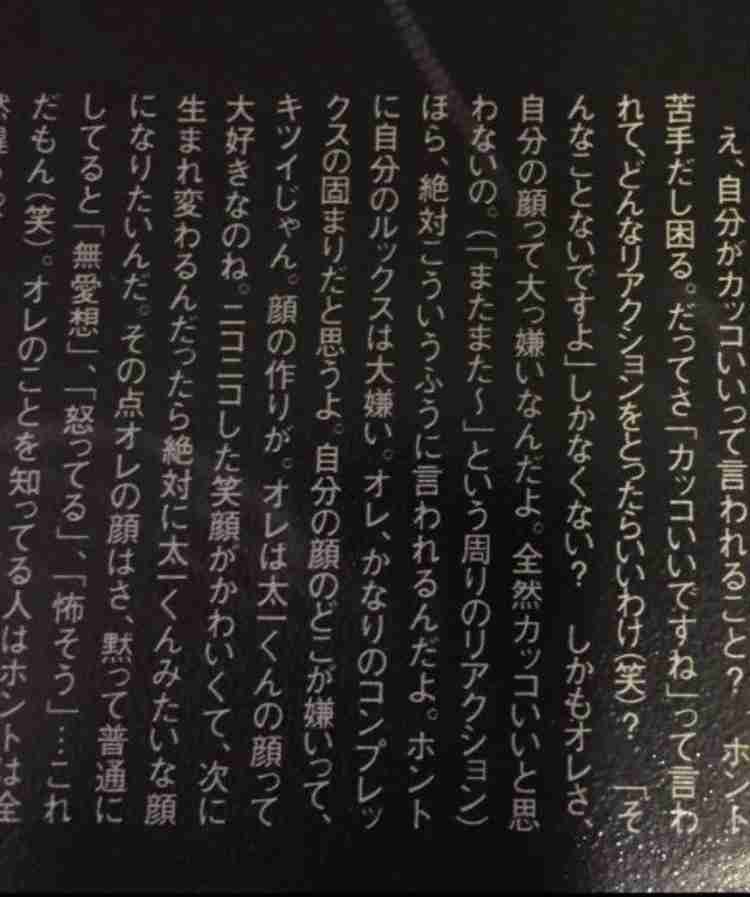 え、自分がカッコいいって言われること? ホント
苦手だし困る。だってさ「カッコいいですね」って言わ
れて、どんなリアクションをとったらいいわけ(笑)? 「そ
んなことないですよ」しかなくない? しかもオレさ、
自分の顔って大っ嫌いなんだよ。全然カッコいいと思
わないの。(「またまた〜」という周りのリアクション)
ほら、絶対こういうふうに言われるんだよ。ホント
に自分のルックスは大嫌い。オレ、かなりのコンプレッ
クスの固まりだと思うよ。自分の顔のどこが嫌いって、
キツイじゃん。顔の作りが。オレは太一くんの顔って
大好きなのね。ニコニコした笑顔がかわいくて、次に
生まれ変わるんだったら絶対に太一くんみたいな顔
になりたいんだ。その点オレの顔はさ、黙って普通に
してると「無愛想」、「怒ってる」、「怖そう」…これ
だもん(笑)。オレのことを知ってる人はホントは全